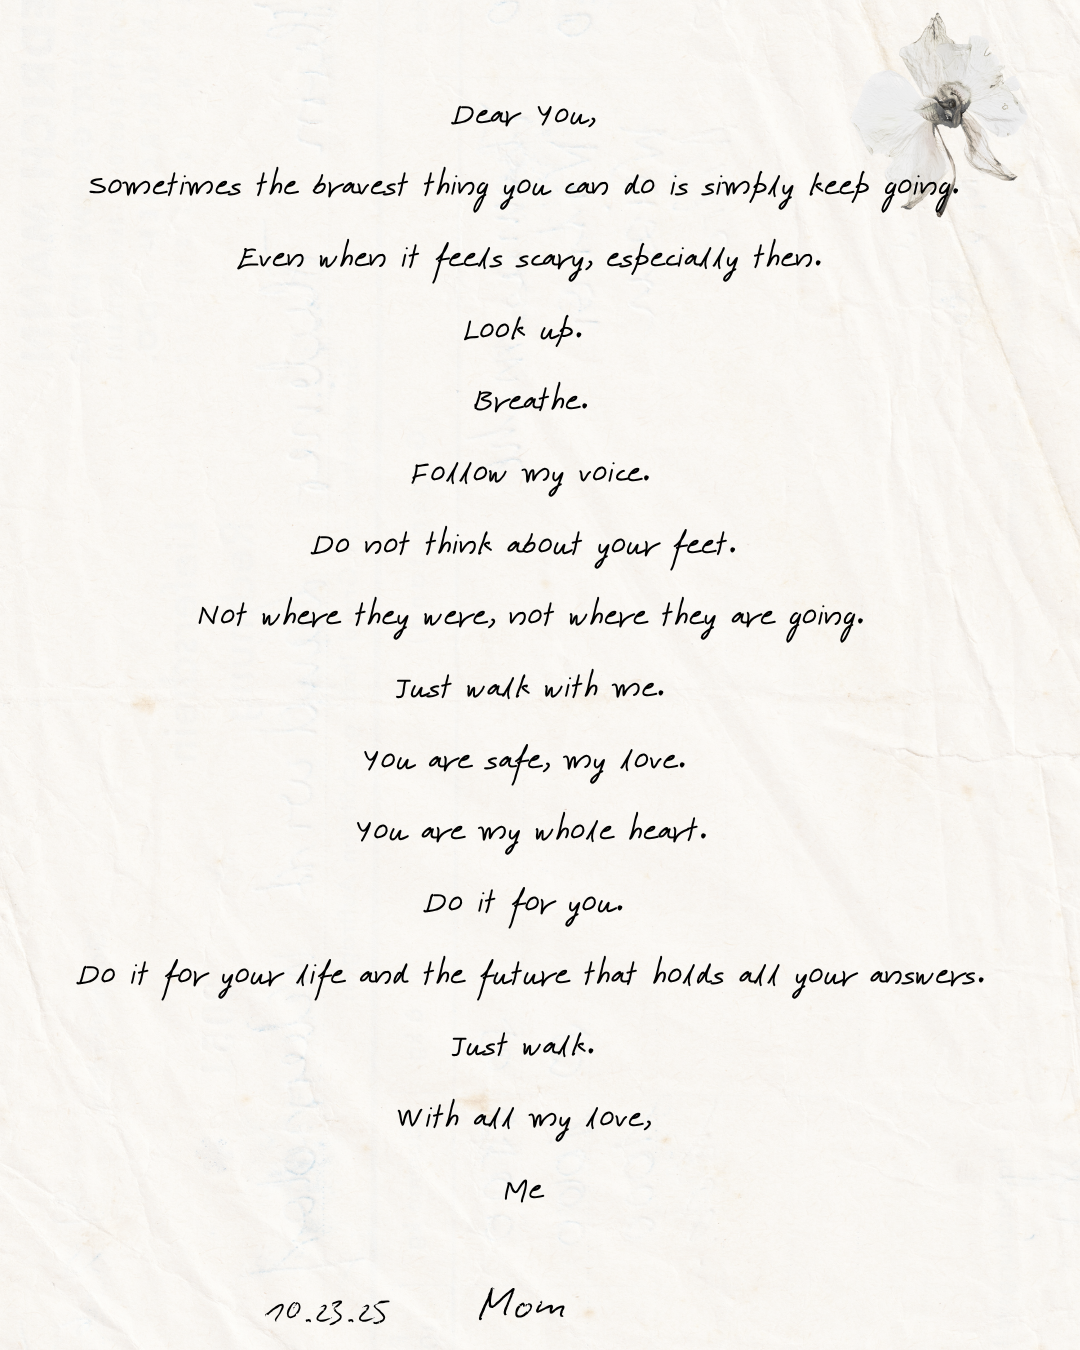 Dear You,
Sometimes the bravest thing you can do is simply keep going.
Even when it feels scary, especially then.
Look up.
Breathe.
Follow my voice.
Do not think about your feet.
Not where they were, not where they are going.
Just walk with me.
You are safe, my love.
You are my whole heart.
Do it for you.
Do it for your life and the future that holds all your answers.
Just walk.
With all my love,
Me
10.23.25 Mom